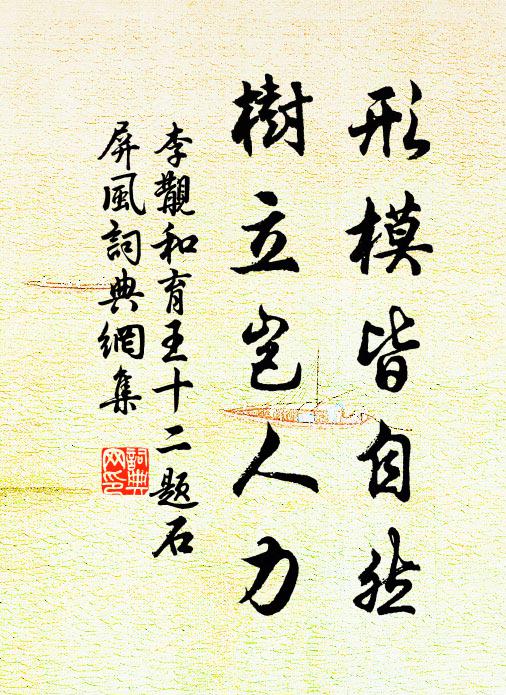 形模皆自然
樹立岂人力
李覯和育王十二题石
屏風詞典網集
詞典
网印